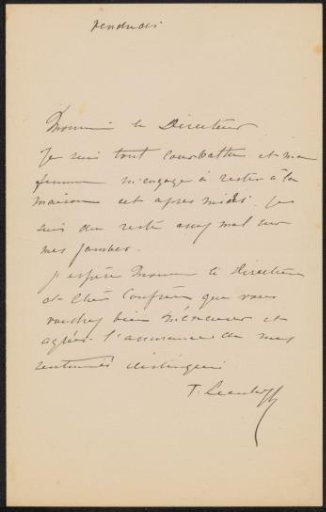 Vendredi
Monsieur le Directeur
Je suis tout courbattu et ma
femme m'engage à rester à la
maison cet après midi. Je
suis du reste assez mal sur
mes jambes.
J'espère Monsieur le Directeur
et Cher Confrère que vous
voudrez bien m'excuser et
agréer l'assurance de mes
sentiments distingués
T.